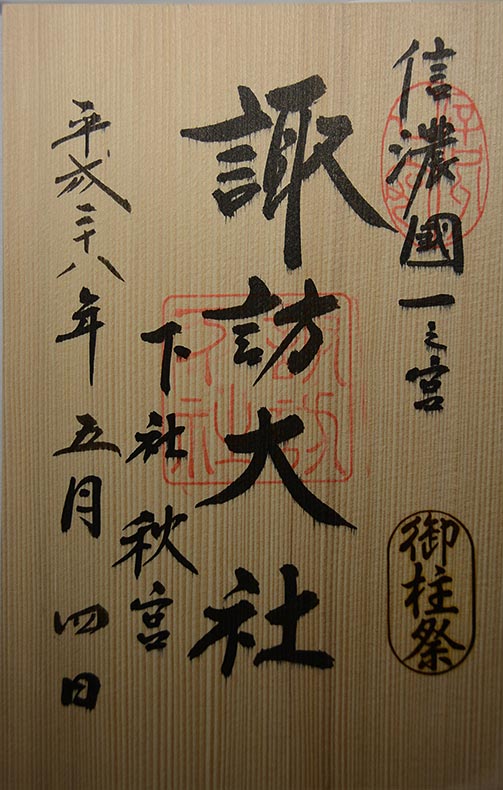 信濃國一之宮
御柱祭
諏訪大社
下社秋宮
平成二十八年五月四日